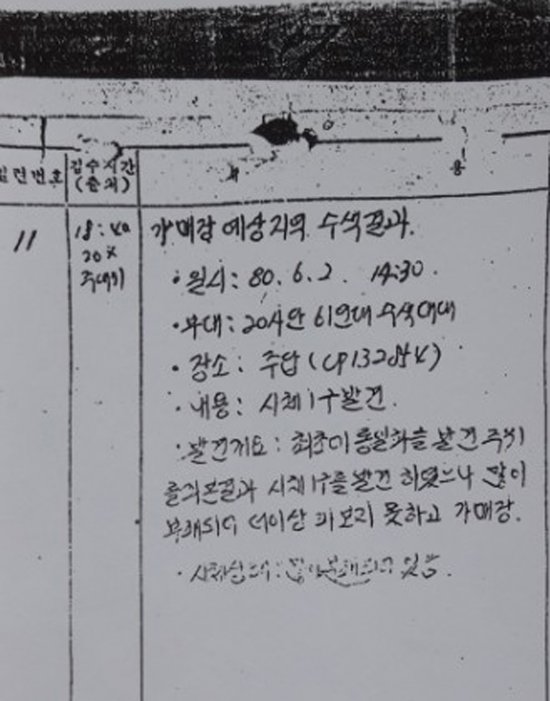 일련번호 접수시간 내 용
(출처)
11 18:40 가매장 예상지역 수색결과.
20X
· 일시: 80. 6. 2. 14:30.
· 부대: 20사단 61연대 수색대대
· 장소: 주답 (CP132854)
· 내용: 시체 1구 발견.
· 발견개요: 최초 이 통일화을 발견 주위
를 파본결과 시체 1구를 발견 하였으나 많이
부패되어 더이상 파보지 못하고 가매장.
· 시체상태: 많이 부패되어 있음.